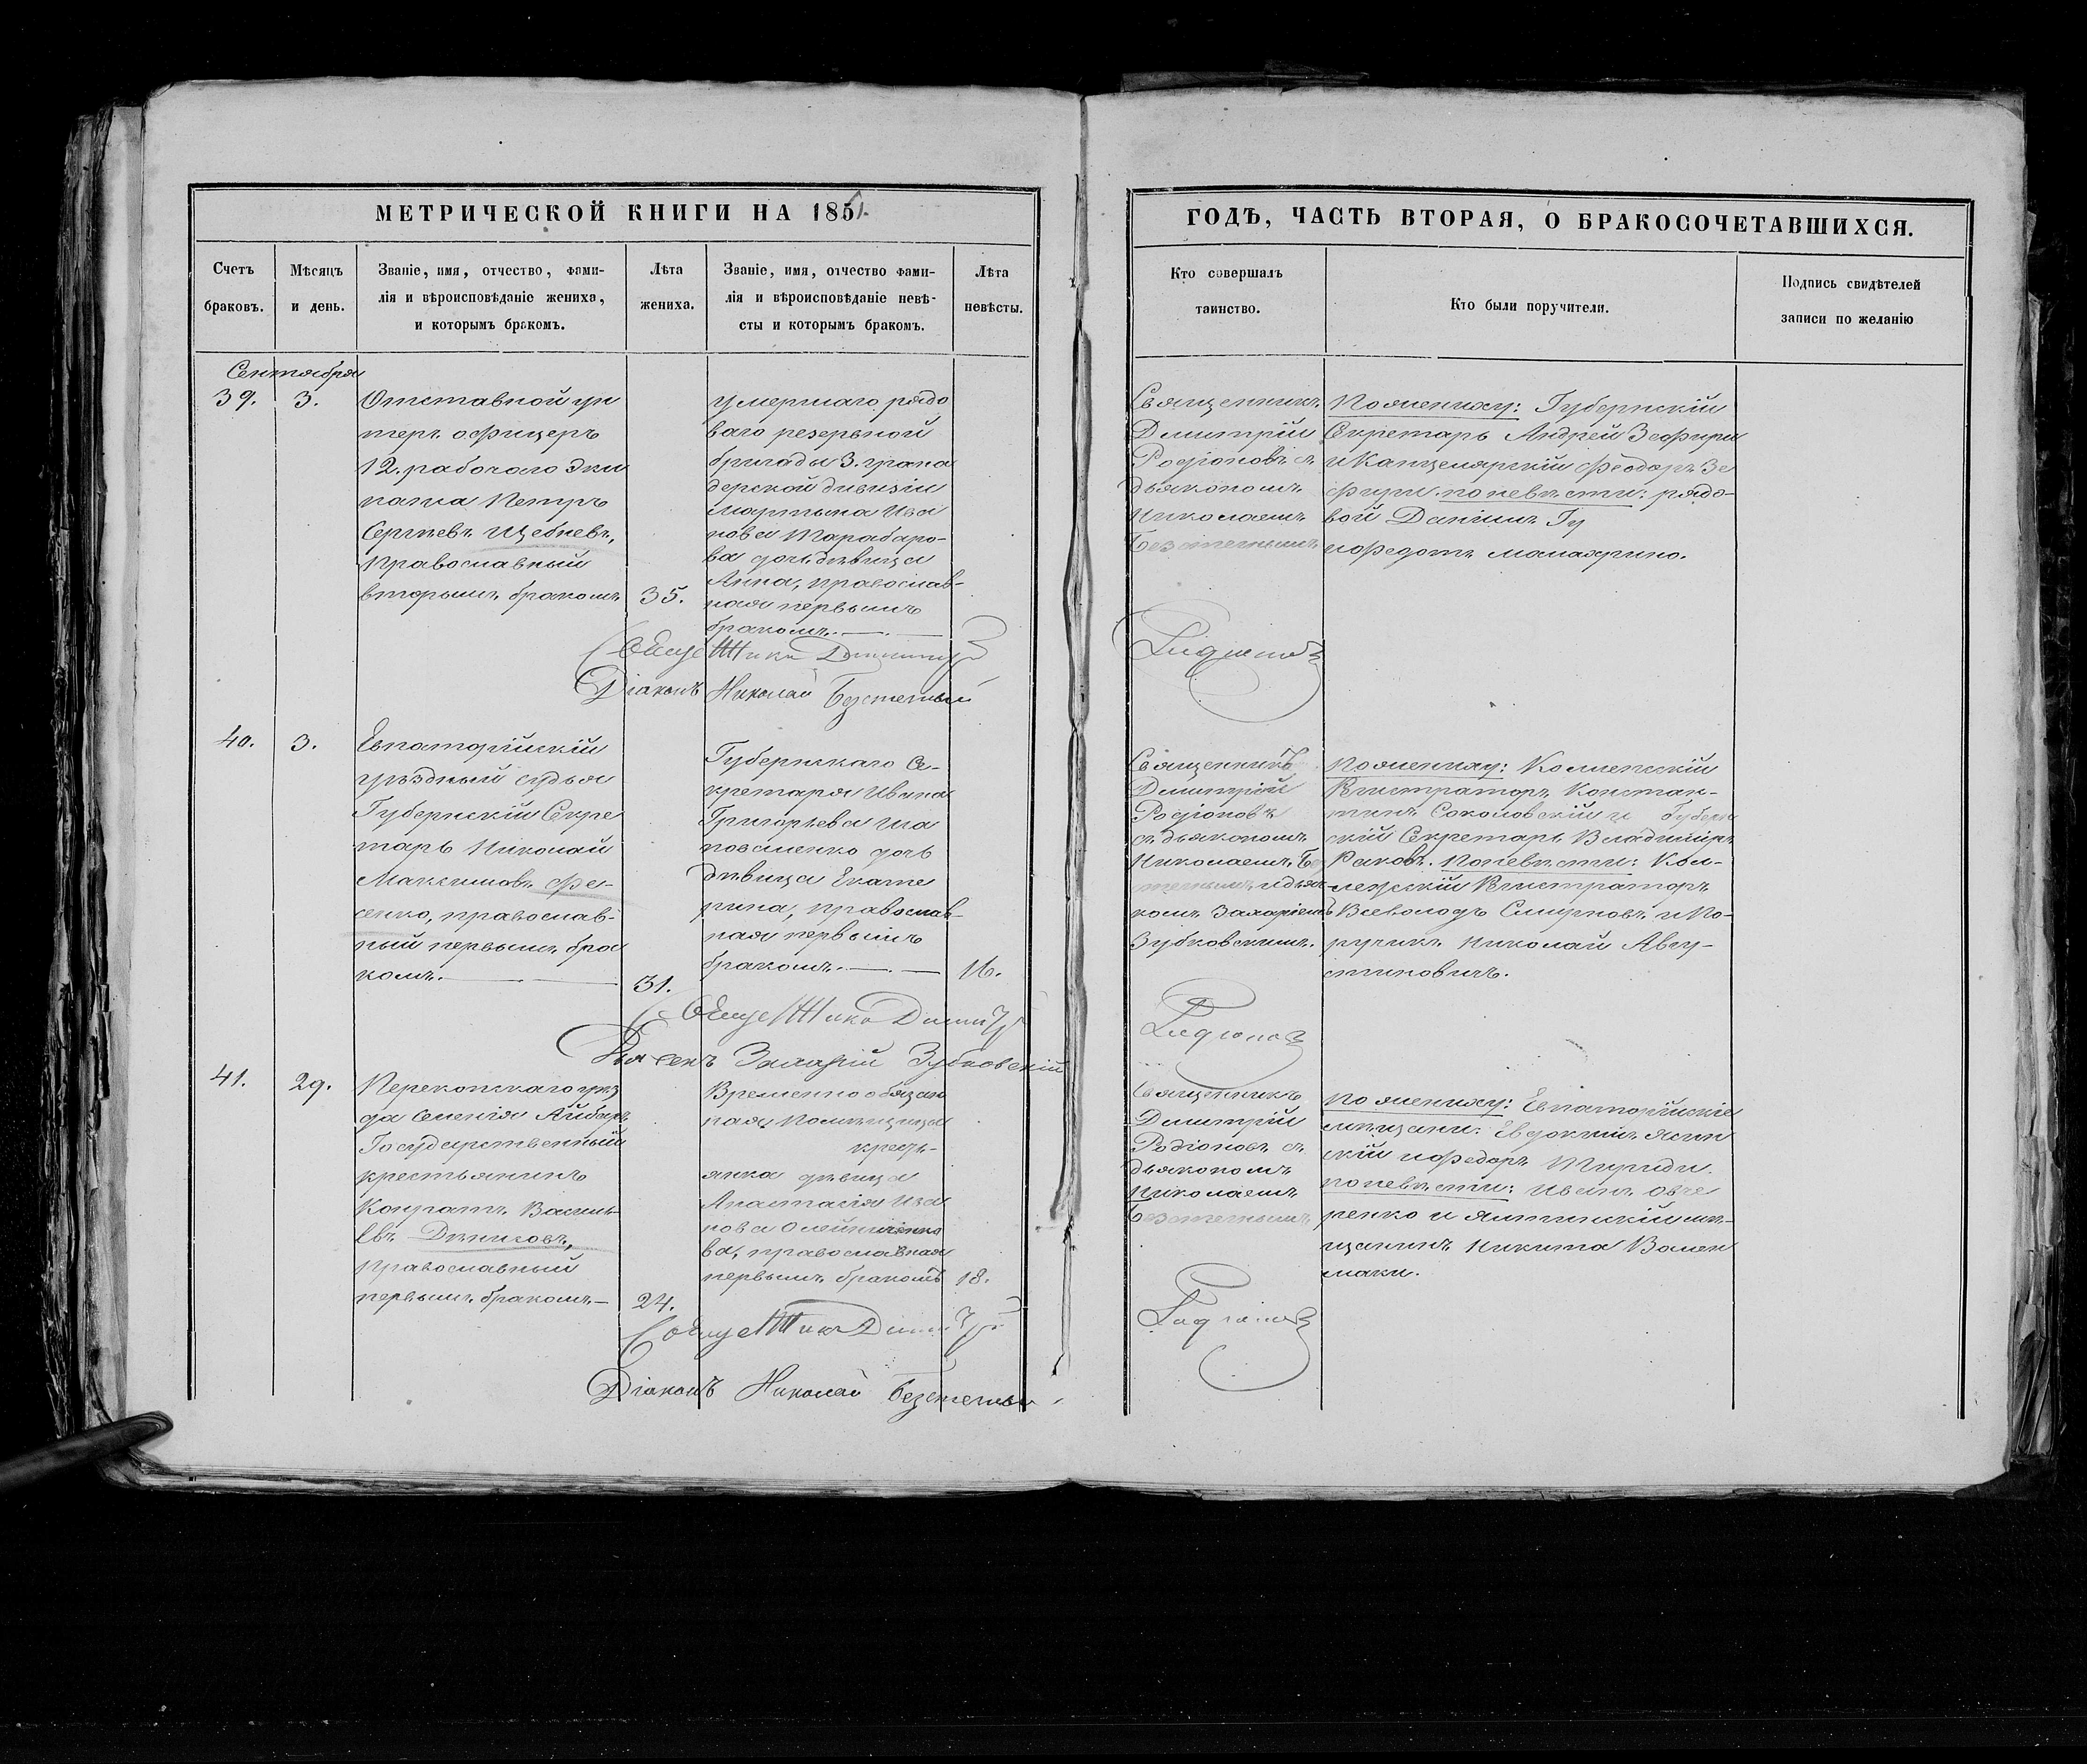 МЕТРИЧЕСКОЙ КНИГИ НА 1851.
Счетъ
браковъ.
Мѣсяцъ
и день.
Званіе, имя, отчество, фами-
лія и вѣроисповѣданіе жениха,
и которымъ бракомъ.
Лѣта
жениха.
Званіе, имя, отчество фами-
лія и вѣроисповѣданіе невѣ-
сты и которымъ бракомъ.
Лѣта
невѣсты.
Сентября
39.
3.
Отставной ун
теръ офицеръ
12. рабочаго Эки
пажа Петръ
Сергѣевъ Щебневъ,
православный
вторымъ бракомъ
35.
умершаго рядо
ваго резервной
бригады 3. грена
дерской дивизіи
Мартына Ива
нова Тарабаро-
ва дочь дѣвица
Анна, православ-
ная первымъ
бракомъ.
Священникъ Димитрій
Діаконъ Николай Безстетный
40.
3.
Евпаторійскій
уѣздный судья
Губернскій Секре
тарь Николай
Максимовъ Фе-
сенко, православ-
ный первымъ бра
комъ.
31.
Губернскаго Се-
кретаря Ивана
Григорьева Ша
поваленко дочь
дѣвица Екате
рина, православ-
ная первымъ
бракомъ.
16.
Священникъ Димитрій
Дьяконъ Захарій Зубковскій
41.
29.
Перекопскаго уѣз
да Селенія Айбаръ
Государственный
крестьянинъ
Кондратъ Василь
евъ Дѣниковъ,
православный
первымъ бракомъ
24.
Временно обязан
ная Помѣщица
кресть-
янка дѣвица
Анастасія Ива
нова
ва, православная
первымъ бракомъ
18.
Священникъ Димитрій
Діаконъ Николай Безстетный
ГОДѢ, ЧАСТЬ ВТОРАЯ, О БРАКОСОЧЕТАВШИХСЯ.
Кто совершалъ
таинство.
Кто были поручители.
Подпись свидѣтелей
записи по желанію
Священникъ
Димитрій
Родіоновъ съ
дьякономъ
Николаемъ
Безстетнымъ
По жениху: Губернскій
Секретарь Андрей Зефири
и Канцелярскій Феодоръ Зе
фири. по невѣстѣ: рядо-
вой Даніилъ Гу
и Федотъ
Родіоновъ
Священникъ
Димитрій
Родіоновъ
съ дьякономъ
Николаемъ Без
стетнымъ и дья
комъ Захаріемъ
Зубковскимъ.
По жениху: Коллежскій
Регистраторъ Констан-
тинъ Соколовскій и Губерн
скій Секретарь Владиміръ
Раковъ. По невѣстѣ: Кол-
лежскій Регистраторъ
Всеволодъ Смирновъ и По-
ручикъ Николай Авгу-
стиновичъ.
Родіоновъ
Священникъ
Димитрій
Родіоновъ съ
дьякономъ
Николаемъ
Безстетнымъ
По жениху: Евпаторійскіе
мѣщане: Евдокимъ Ясин
скій и Федоръ
по невѣстѣ: Иванъ Овче
ренко и Ялтинскій мѣ-
щанинъ Никита
Родіоновъ